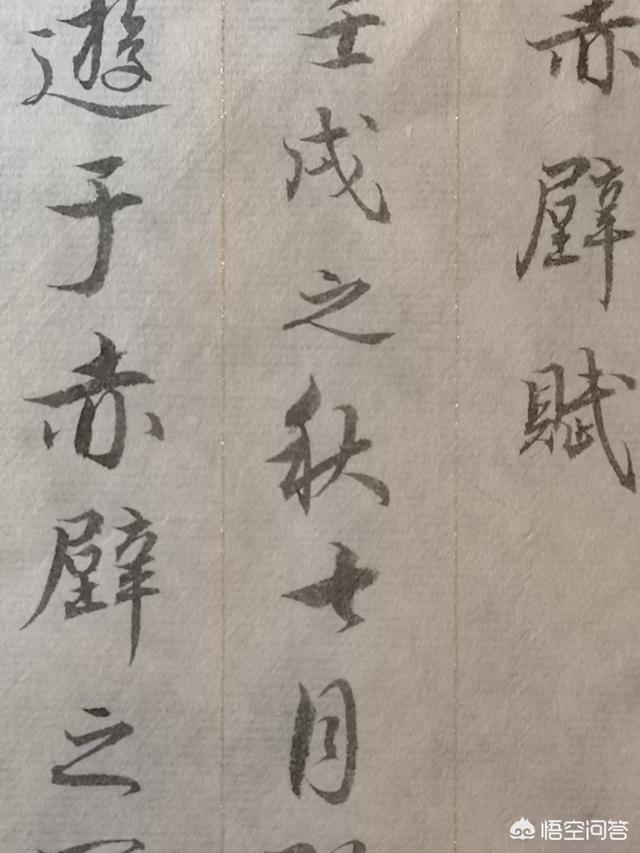 赤壁賦
壬戌之秋七月
遊于赤壁之
悟空问答